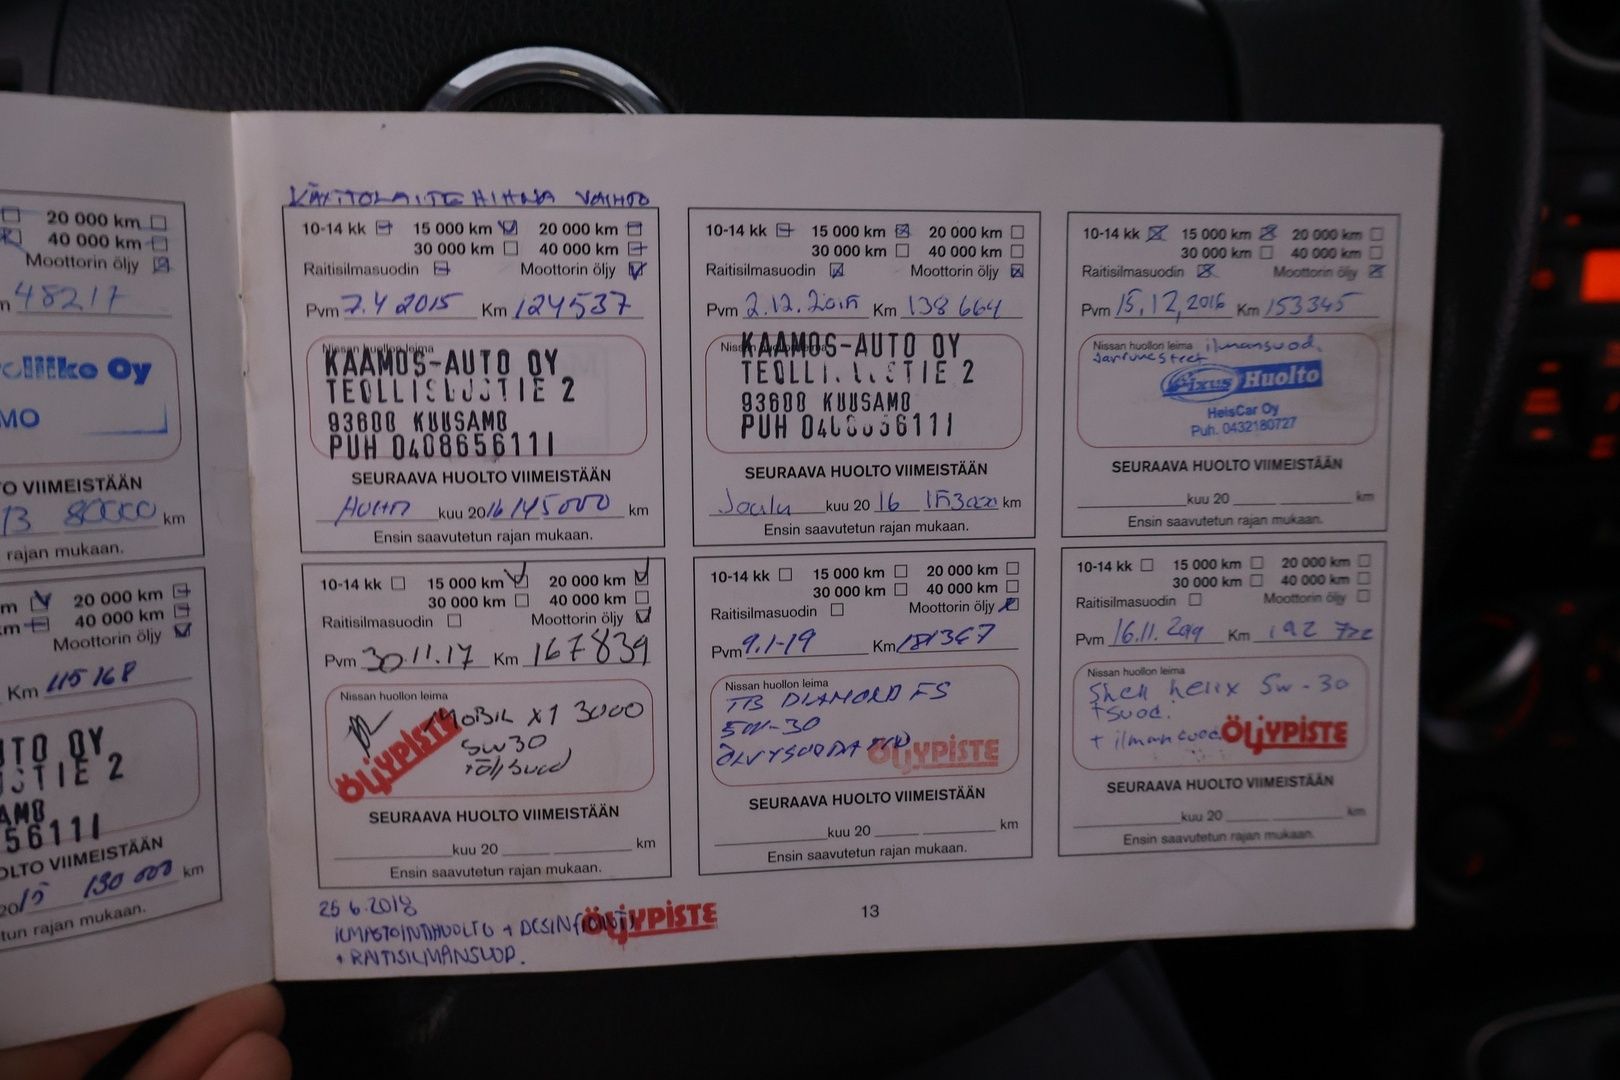 20 000 km
40 000 km
Moottorin öljy
48217
liike Oy
MO
O VIIMEISTÄÄN
13 80000 km
rajan mukaan.
20 000 km
40 000 km
Moottorin öljy
Km 115168
UTO OY
TIE 2
AMO
56111
OLTO VIIMEISTÄÄN
2015 130 000 km
tun rajan mukaan.
HIHNA VAIHTO
10-14 kk 15 000 km 20 000 km
30 000 km 40 000 km
Raitisilmasuodin Moottorin öljy
Pvm 7.4 2015 Km 124537
Nissan huollon leima
KAAMOS-AUTO OY
TEOLLISUUSTIE 2
93600 KUUSAMO
PUH 0408656111
SEURAAVA HUOLTO VIIMEISTÄÄN
Huhti kuu 2016 145000 km
Ensin saavutetun rajan mukaan.
10-14 kk 15 000 km 20 000 km
30 000 km 40 000 km
Raitisilmasuodin Moottorin öljy
Pvm 2.12.2015 Km 138 664
KAAMOS-AUTO OY
TEOLLISUUSTIE 2
93600 KUUSAMO
PUH 0408656111
SEURAAVA HUOLTO VIIMEISTÄÄN
Joulu kuu 2016 153000 km
Ensin saavutetun rajan mukaan.
10-14 kk 15 000 km 20 000 km
30 000 km 40 000 km
Raitisilmasuodin Moottorin öljy
Pvm 15.12.2016 Km 153345
Nissan huollon leima ilmansuod.
Jarrunesteet
Fixus Huolto
HeisCar Oy
Puh. 0432180727
SEURAAVA HUOLTO VIIMEISTÄÄN
kuu 20 km
Ensin saavutetun rajan mukaan.
10-14 kk 15 000 km 20 000 km
30 000 km 40 000 km
Raitisilmasuodin Moottorin öljy
Pvm 30.11.17 Km 167839
Nissan huollon leima
MOBIL X1 3000
5W30
+ölj suod
ÖLJYPISTE
SEURAAVA HUOLTO VIIMEISTÄÄN
kuu 20 km
Ensin saavutetun rajan mukaan.
10-14 kk 15 000 km 20 000 km
30 000 km 40 000 km
Raitisilmasuodin Moottorin öljy
Pvm 9.1-19 Km 181367
Nissan huollon leima
TB DIAMOND FS
5W-30
ÖLJYSUODATIN ÖLJYPISTE
SEURAAVA HUOLTO VIIMEISTÄÄN
kuu 20 km
Ensin saavutetun rajan mukaan.
10-14 kk 15 000 km 20 000 km
30 000 km 40 000 km
Raitisilmasuodin Moottorin öljy
Pvm 16.11.2019 Km 192 772
Nissan huollon leima
Shell helix 5w-30
+suod.
+ ilmansuod. ÖLJYPISTE
SEURAAVA HUOLTO VIIMEISTÄÄN
kuu 20 km
Ensin saavutetun rajan mukaan.
25 6.2018
ILMASTOINTIHUOLTO + DESINFIOINTI ÖLJYPISTE
+ RAITISILMANSUOD.
13